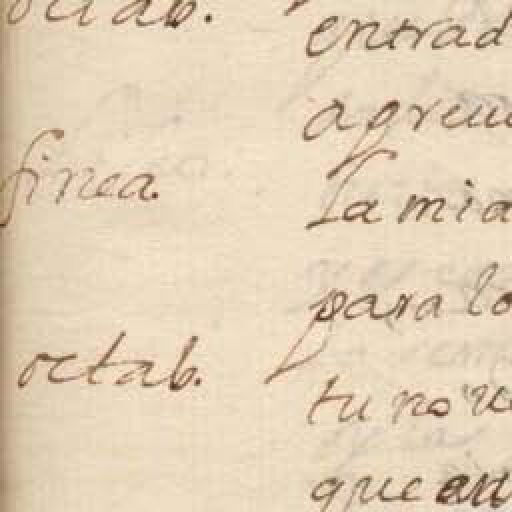 octab. entrad
a prue
finea. La mia
para lo
octab. tu no
que